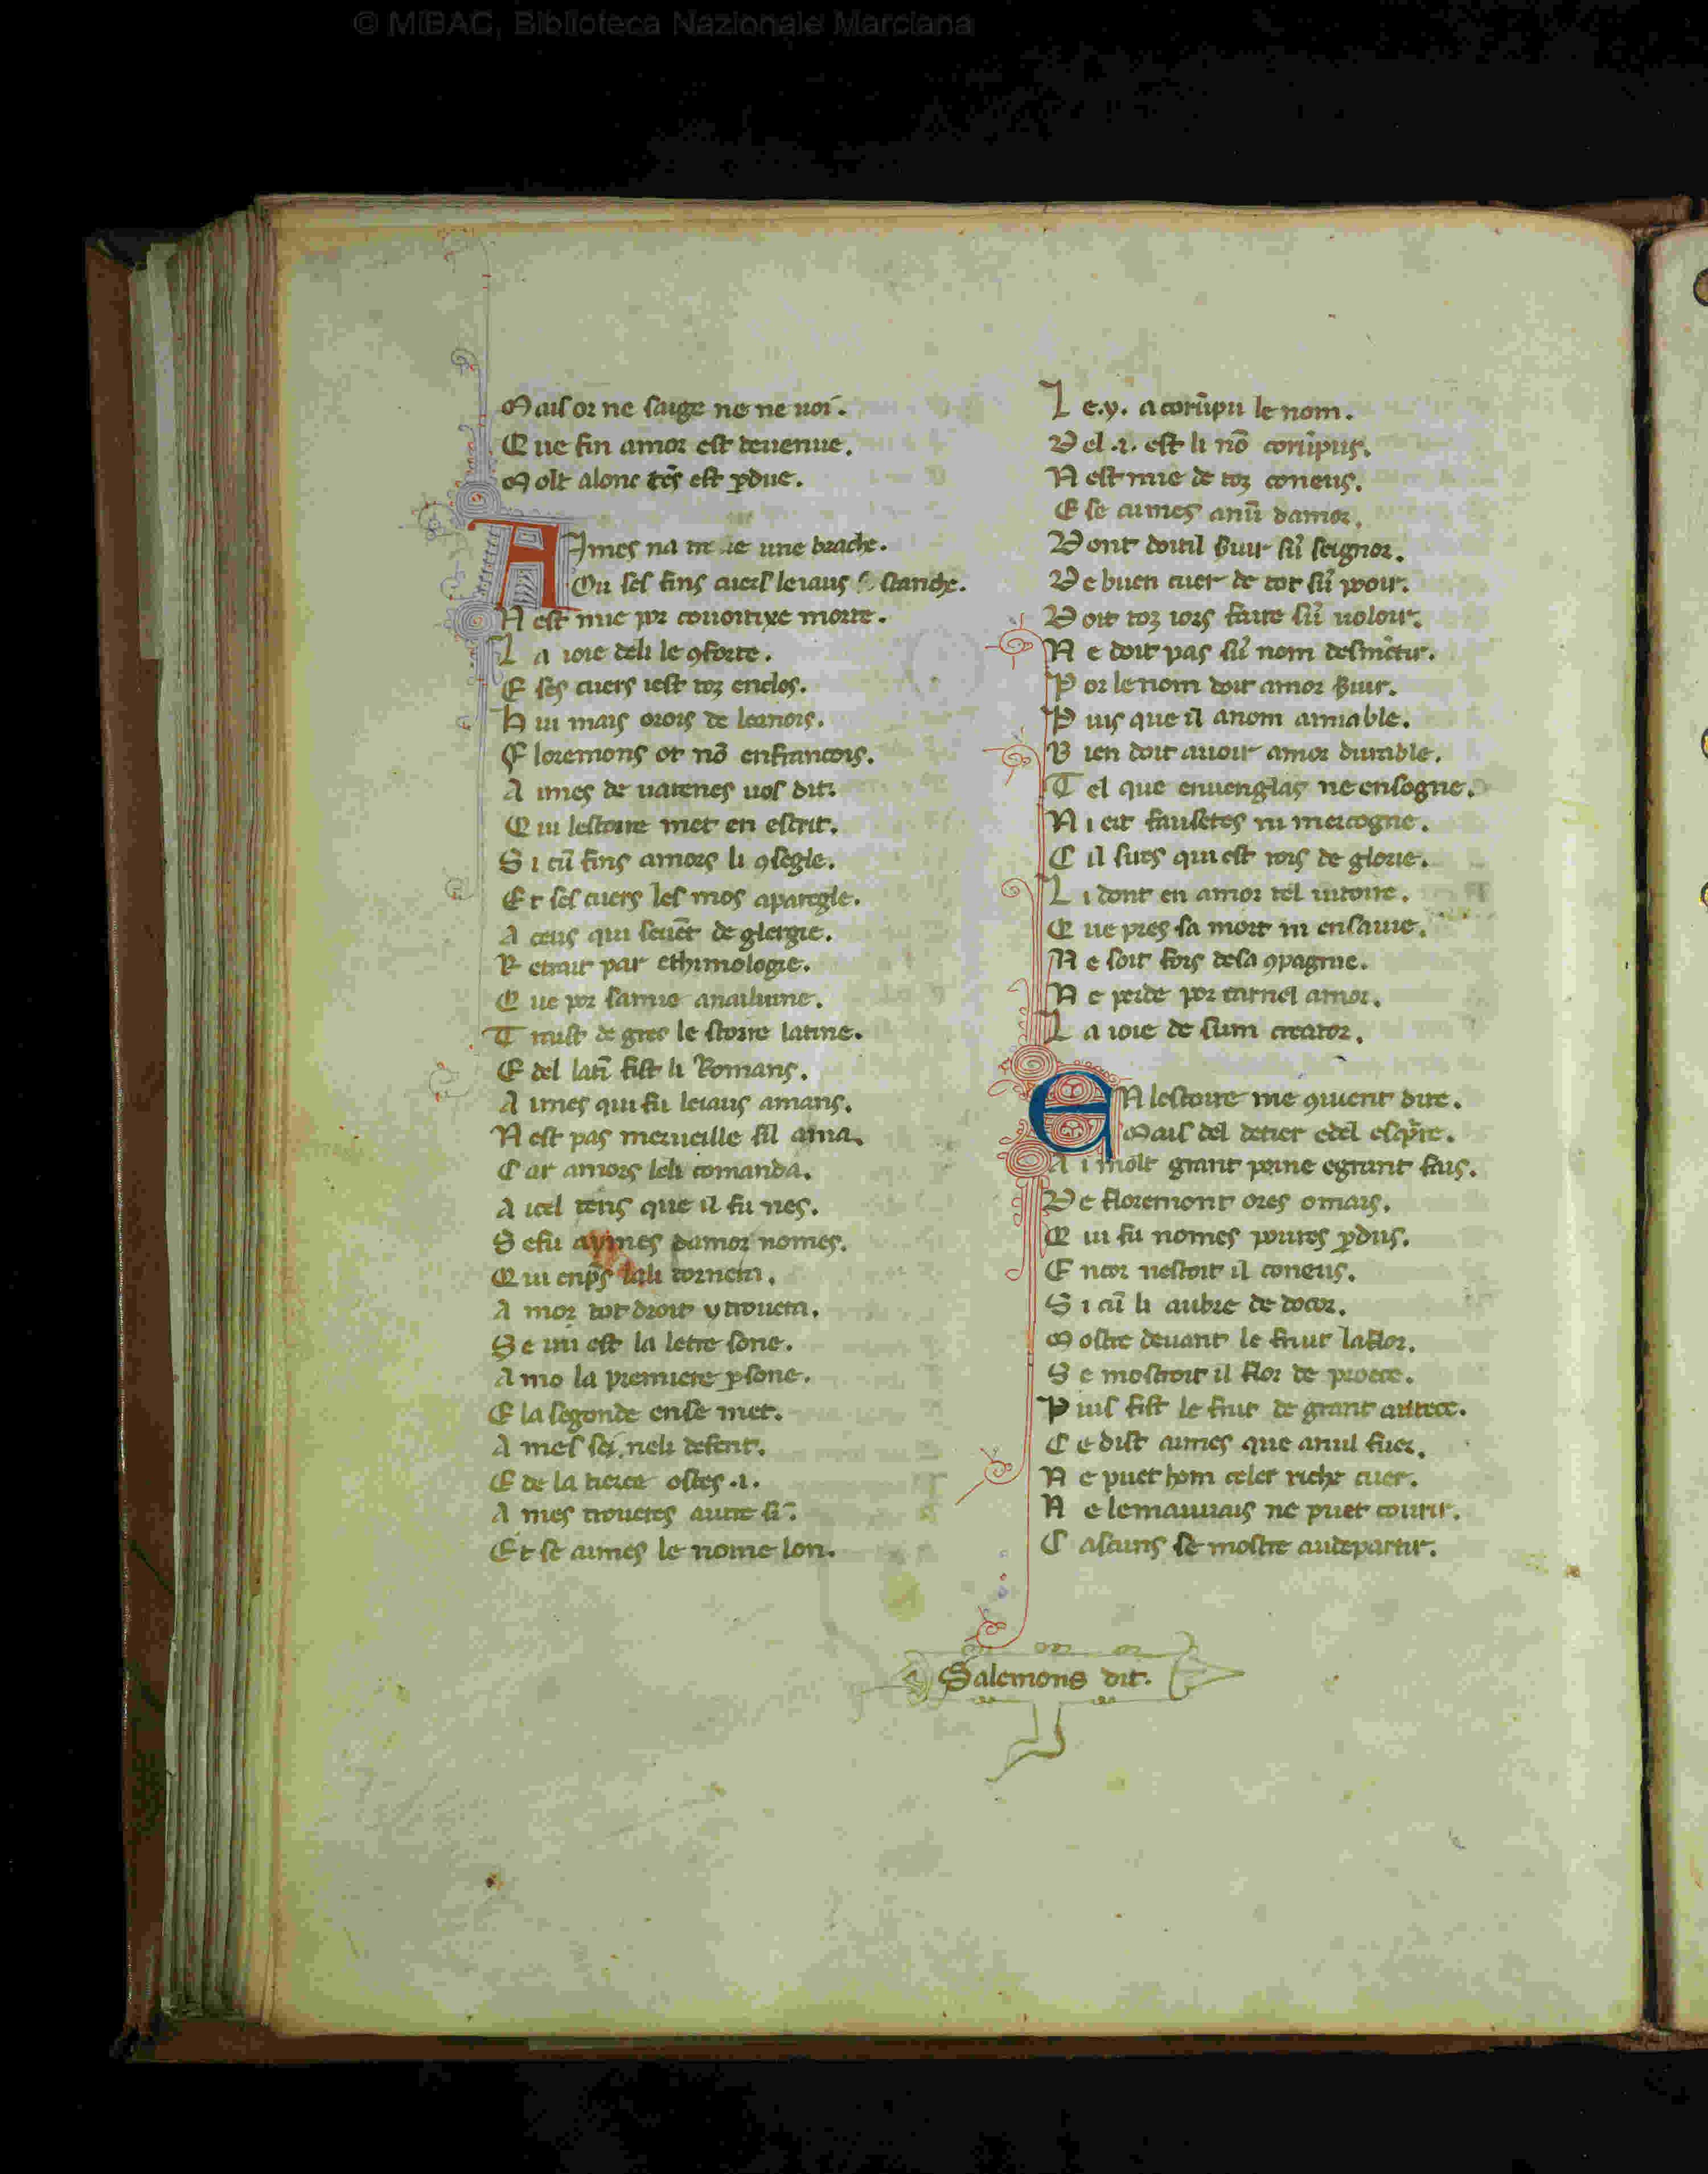 © MiBAC, Biblioteca Nazionale Marciana
Mais or ne saige ne ne uoi.
Que fin amor est deuenue.
Molt alonc tēs est ꝑdue.
AImes na une brache.
Ou ses fins cuers leiaus stanche.
Nest mie por couoitixe morte.
La ioie deli le ꝯforte.
E ses cuers iest toz enclos.
Hui mais orois de leonois.
Floremons ot nō enfrancois.
Aimes de uarenes uos dit.
Qui lestoire met en escrit.
Si cū fins amors li ꝯsegle.
Et ses cuers les mos aparegle.
A ceus qui seuēt de glergie.
Retrait par ethimologie.
Que por samie anailline.
Traist de grec le stoire latine.
E del latī fist li Romans.
Aimes qui fu leiaus amans.
Nest pas merueille sil ama.
Car amors leli comanda.
A icel tens que il fu nes.
Sefu aymes damor nomes.
Qui enp̄s lali tornera.
Amor tot droit y trouera.
Se mi est la letre sone.
Amo la premiere ꝑsone.
E la segonde ense met.
Ames neli defent.
E de la tierce ostes .i.
Ames troueres autre sī.
Et se aimes le nome lon.
Le.y. a corūpu le nom.
Del .i. est li nō corūpus.
Nest mie de toz coneus.
E se aimes anū damor.
Dont doitil ẜuir sū seignor.
De buen cuer de tot sū pooir.
Doit toz iors faire sū uoloir.
Ne doit pas sū nom desmētir.
Por lenom doit amor ẜuir.
Puis que il anom amiable.
Bien doit auoir amor durable.
Tel que enuenglas ne ensogne.
Ni eit fausetes ni mercogne.
Cil sires qui est rois de glorie.
Li dont en amor tel uitoire.
Que pres sa mort ni ensauie.
Ne soit fors desa ꝯpagnie.
Ne perde por carnel amor.
La ioie de sum creator.
EN lestoire me ꝯuient dire.
Mais del detier edel escp̄re.
Ai molt grant poine egrant fais.
De floremont ores omais.
Qui fu nomes poures ꝑdus.
Encor nestoit il coneus.
Si cū li aubre de docor.
Mostre deuant le fruit laflor.
Se mostroit il flor de proece.
Puis fist le fruit de grant autece.
Ce dist aimes que anul fuer.
Ne puet hom celer riche cuer.
Ne lemauuais ne puet courir.
Cascuns se mostre audepartir.
Salemons dit.